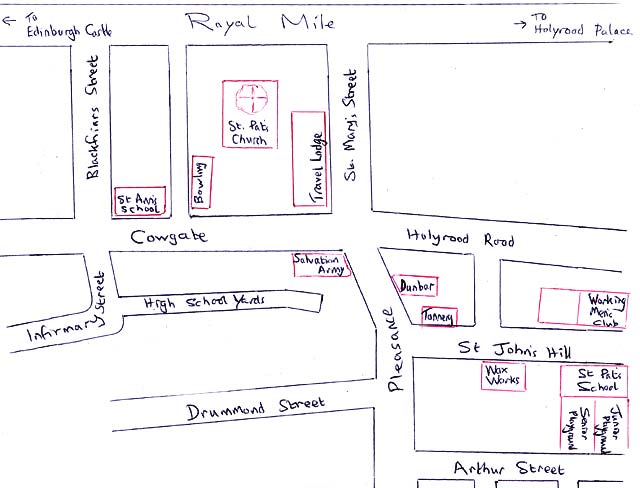 ← To
Edinburgh Castle
Royal Mile
→ To
Holyrood Palace
Blackfriars Street
St. Pats
Church
Travel Lodge
St. Mary's Street
Bowling
St Ann's
School
Cowgate
Holyrood Road
Salvation
Army
Infirmary Street
High School Yards
Dunbar
Tannery
Working
Mens
Club
Pleasance
St John's Hill
Wax
Works
St Pats
School
Senior
Playground
Junior
Playground
Drummond Street
Arthur Street